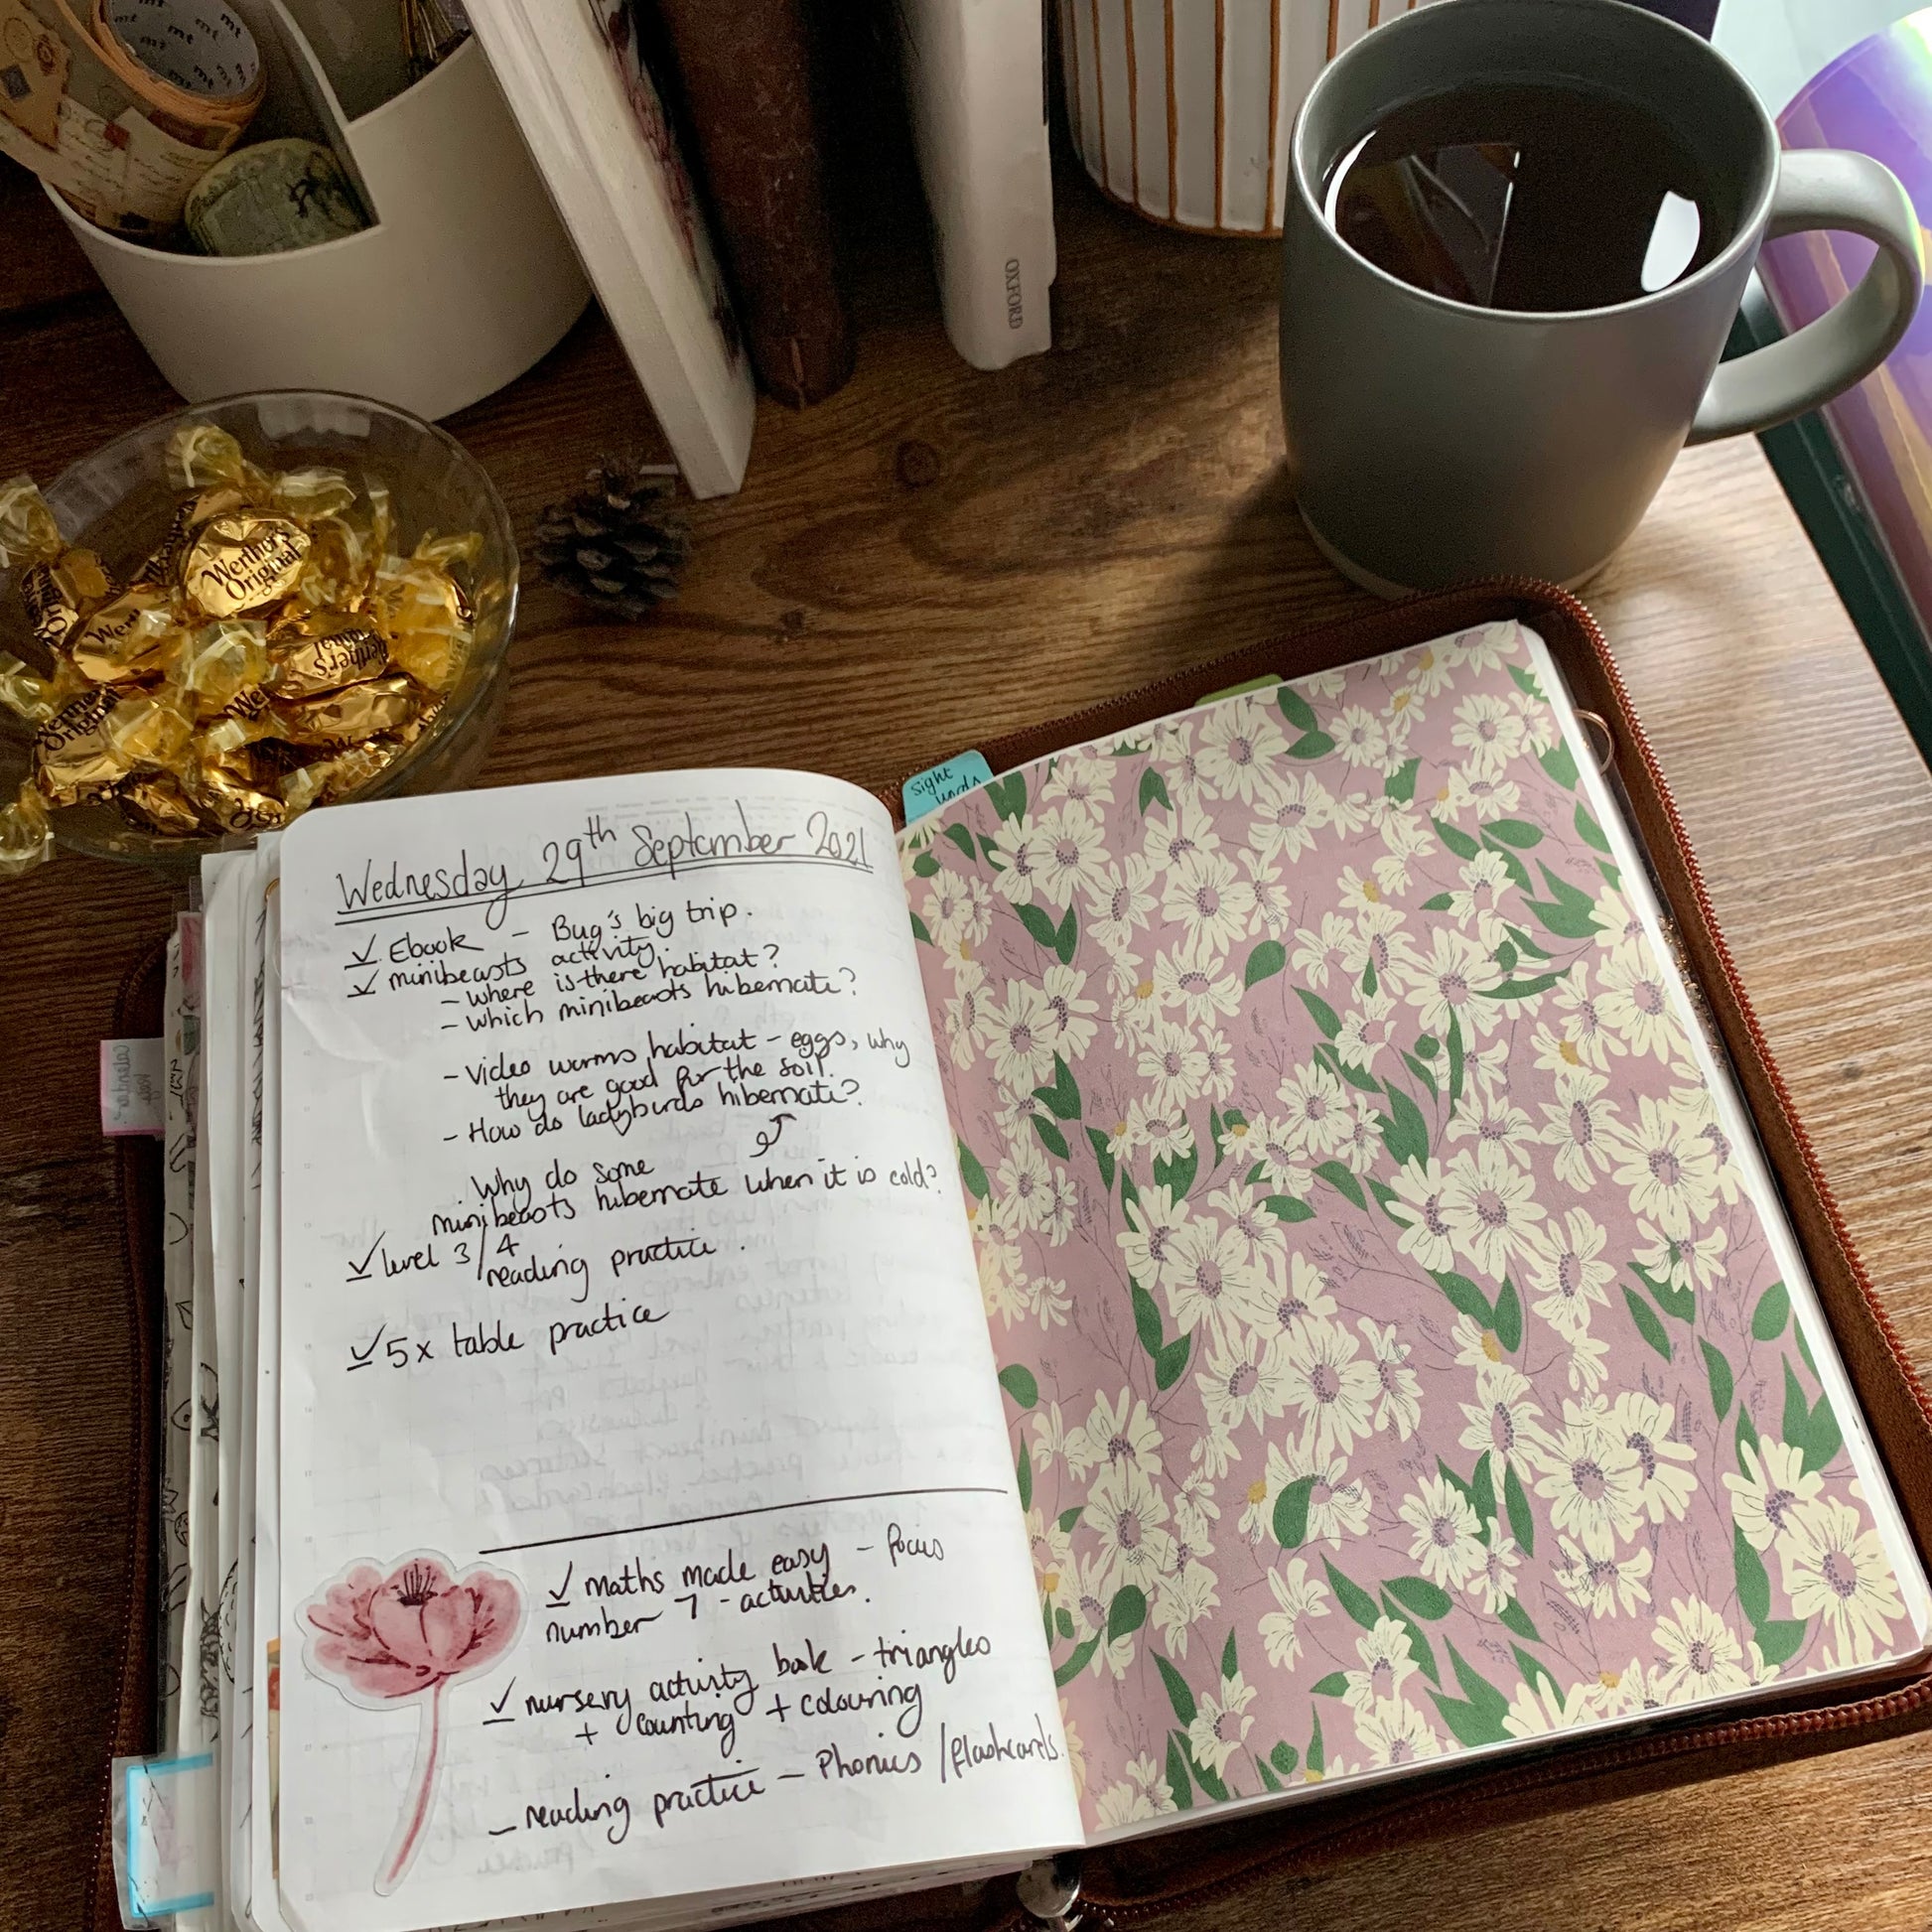 mt mt mt mt mt
OXFORD
Werther's
Original
Wer
Werther's
Original
Werther's
Original
Sight
words
Wednesday 29th September 2021
✓ Ebook - Bug's big trip.
✓ minibeasts activity.
- where is there habitat?
- which minibeasts hibernate?
- Video worms habitat - eggs, why
they are good for the soil.
- How do ladybirds hibernate?
. Why do some
minibeasts hibernate when it is cold?
✓ level 3/4
reading practice.
✓ 5x table practice
✓ maths made easy - focus
number 7 - activities.
✓ nursery activity book - triangles
+ counting + colouring
- reading practice - Phonics / flashcards.